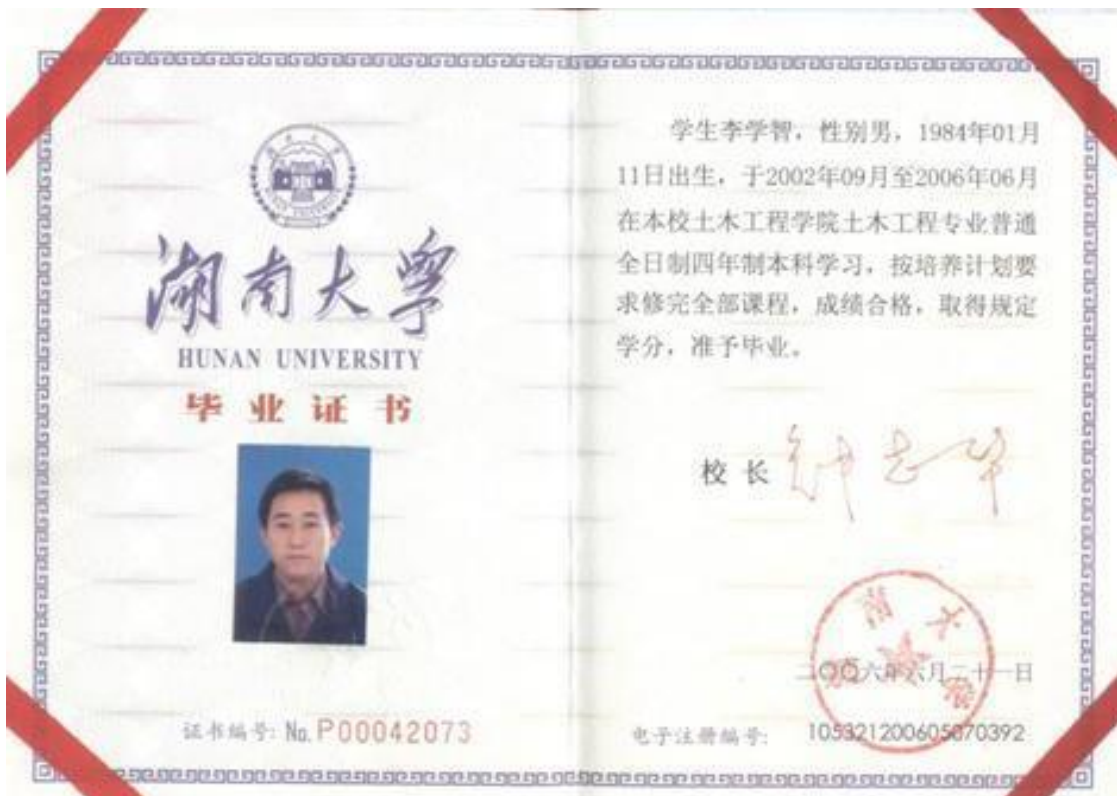 湖南大学
HUNAN UNIVERSITY
毕业证书
证书编号: No. P00042073
学生李学智，性别男，1984年01月
11日出生，于2002年09月至2006年06月
在本校土木工程学院土木工程专业普通
全日制四年制本科学习，按培养计划要
求修完全部课程，成绩合格，取得规定
学分，准予毕业。
校 长 钟志华
湖南大学
二〇〇六年六月二十一日
电子注册编号: 105321200605070392